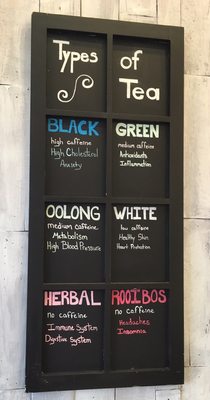 Types of
Tea
BLACK
high caffeine
High Cholesterol
Anxiety
GREEN
medium caffeine
Antioxidants
Inflammation
OOLONG
medium caffeine
Metabolism
High Blood Pressure
WHITE
low caffeine
Healthy Skin
Heart Protection
HERBAL
no caffeine
Immune System
Digestive System
ROOIBOS
no caffeine
Headaches
Insomnia